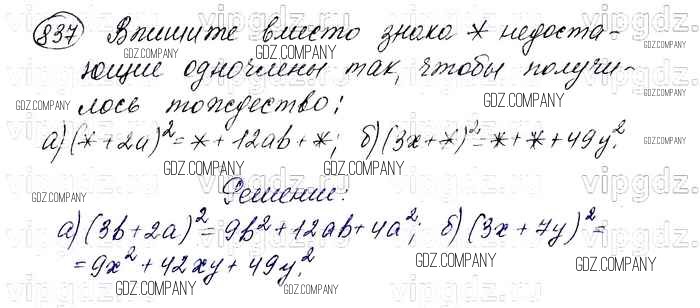 837 Впишите вместо знака * недоста-
ющие одночлены так, чтобы получи-
лось тождество:
а) (* + 2a)² = * + 12ab + *; б) (3x + *)² = * + * + 49y².
Решение:
а) (3b + 2a)² = 9b² + 12ab + 4a²; б) (3x + 7y)² =
= 9x² + 42xy + 49y².
GDZ.COMPANY
vipgdz.ru